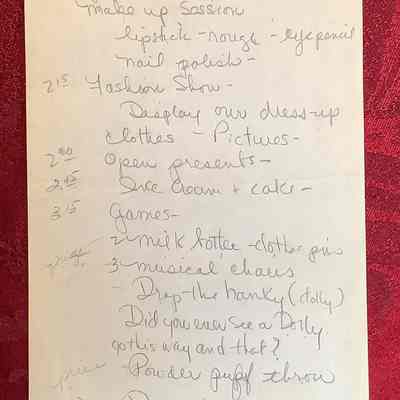 make up Session
lipstick - rouge - eye pencil
nail polish -
2 15 Fashion Show -
Display our dress-up
clothes - Pictures -
2 30 Open presents -
2 45 Ice Cream + cake -
3 15 Games -
2 - milk bottle - clothes pins
3 - musical chairs
- Drop-the hanky (dolly)
Did you ever see a Dolly
go this way and that?
Powder puff throw